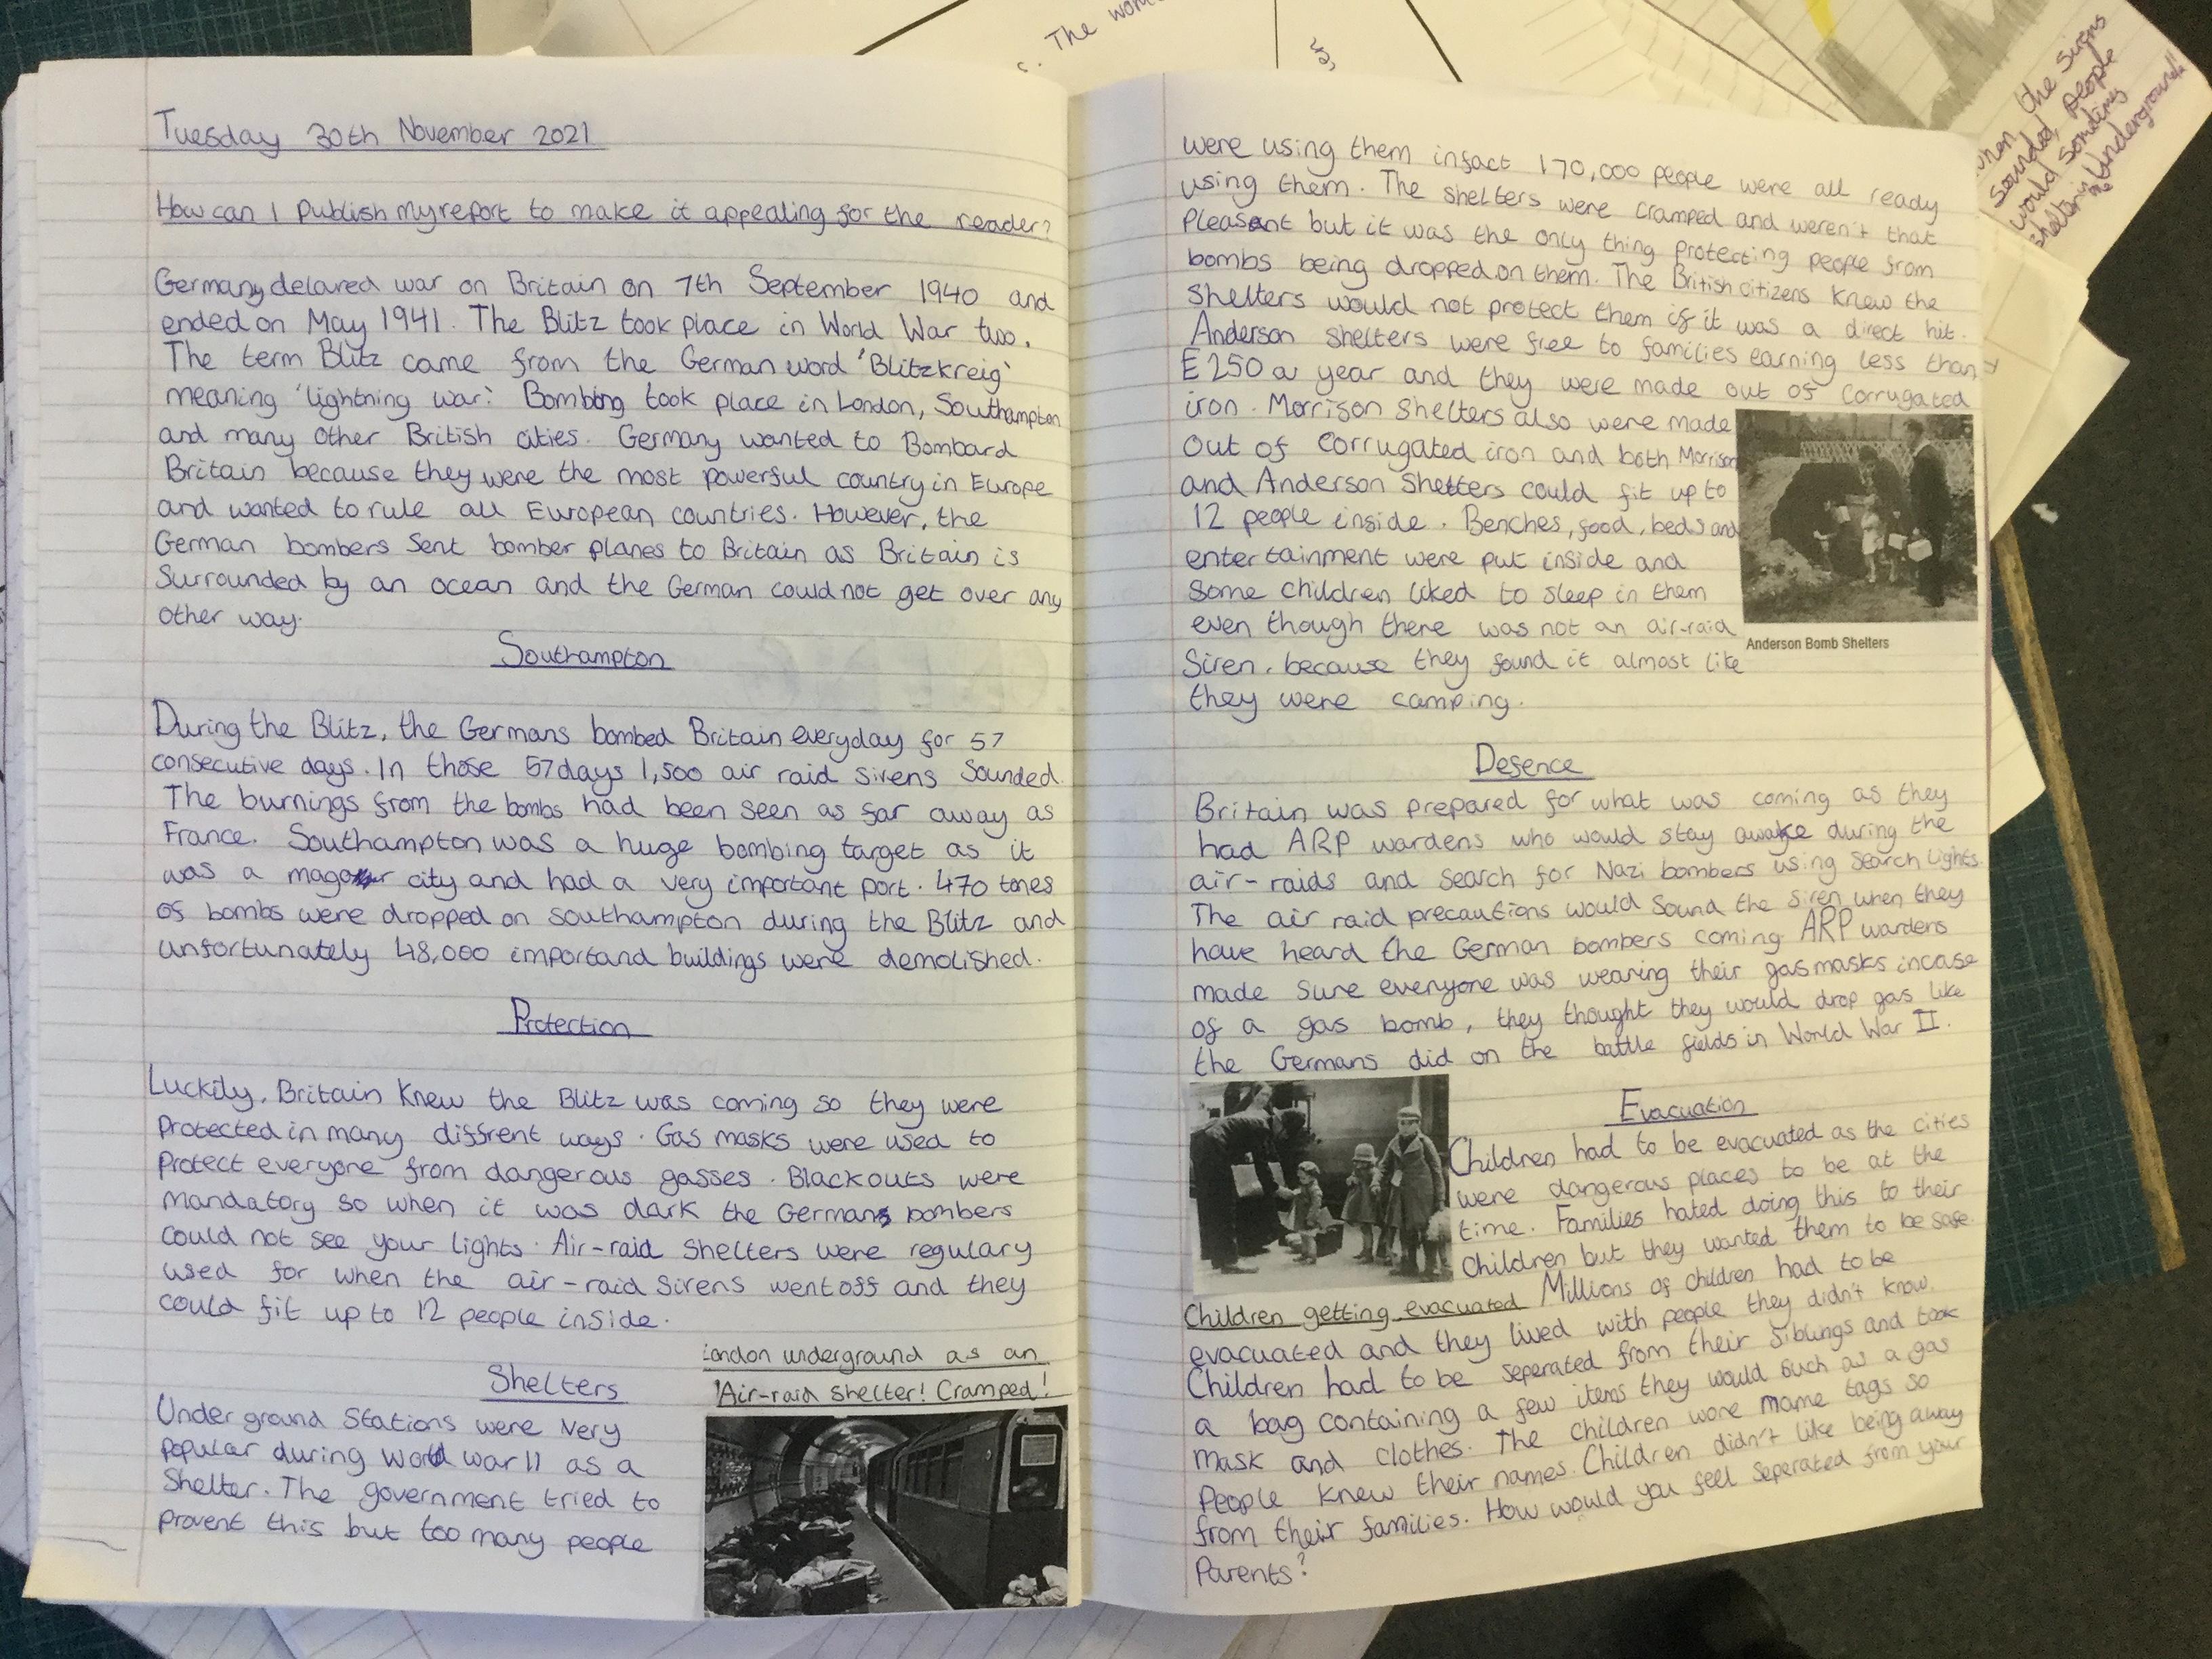 c. The
Tuesday 30th November 2021
How can I publish my report to make it appealing for the reader?
Germany delared war on Britain on 7th September 1940 and
ended on May 1941. The Blitz took place in World War two.
The term Blitz came from the German word 'Blitzkreig'
meaning 'lightning war'. Bombing took place in London, Southampton
and many other British cities. Germany wanted to Bombard
Britain because they were the most powerful country in Europe
and wanted to rule all European countries. However, the
German bombers sent bomber planes to Britain as Britain is
surrounded by an ocean and the German could not get over any
other way.
Southampton
During the Blitz, the Germans bombed Britain everyday for 57
consecutive days. In those 57 days 1,500 air raid sirens sounded.
The burnings from the bombs had been seen as far away as
France. Southampton was a huge bombing target as it
was a city and had a very important port. 470 tones
of bombs were dropped on Southampton during the Blitz and
unfortunately 48,000 importand buildings were demolished.
Protection
Luckily, Britain knew the Blitz was coming so they were
protected in many diffrent ways. Gas masks were used to
protect everyone from dangerous gasses. Blackouts were
mandatory so when it was dark the Germans bombers
could not see your lights. Air-raid shelters were regulary
used for when the air-raid sirens went off and they
could fit up to 12 people inside.
Shelters
London underground as an
Air-raid shelter! Cramped!
Under ground Stations were very
popular during World War II as a
Shelter. The government tried to
prevent this but too many people
were using them infact 170,000 people were all ready
using them. The shelters were cramped and weren't that
pleasant but it was the only thing protecting people from
bombs being dropped on them. The British citizens knew the
shelters would not protect them if it was a direct hit.
Anderson shelters were free to families earning less than
£250 a year and they were made out of corrugated
iron. Morrison shelters also were made
out of corrugated iron and both Morrison
and Anderson Shelters could fit up to
12 people inside. Benches, food, beds and
entertainment were put inside and
some children liked to sleep in them
even though there was not an air-raid
siren, because they found it almost like
they were camping.
Anderson Bomb Shelters
Defence
Britain was prepared for what was coming as they
had ARP wardens who would stay awake during the
air-raids and search for Nazi bombers using search lights.
The air raid precautions would sound the siren when they
have heard the German bombers coming. ARP wardens
made sure everyone was wearing their gas masks incase
of a gas bomb, they thought they would drop gas like
the Germans did on the battle fields in World War II.
Evacuation
Children had to be evacuated as the cities
were dangerous places to be at the
time. Families hated doing this to their
children but they wanted them to be safe.
Millions of children had to be
Children getting evacuated
evacuated and they lived with people they didn't know.
Children had to be seperated from their siblings and took
a bag containing a few items they would such as a gas
mask and clothes. The children wore name tags so
people knew their names. Children didn't like being away
from their families. How would you feel seperated from your
parents?
when the sirens
sounded, people
would
shelter in
the Underground!